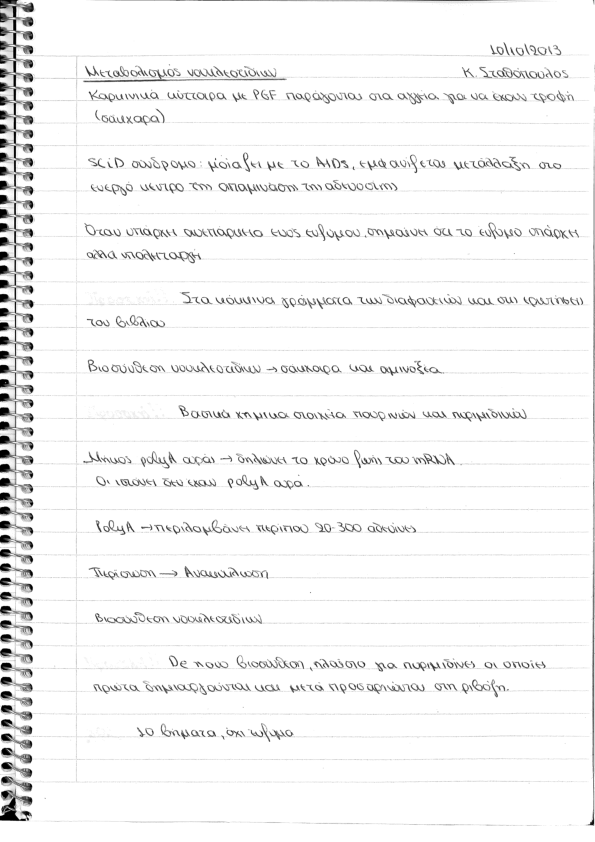 10/10/2013
Μεταβολισμός νουκλεοτιδίων Κ. Σταθόπουλος
Καρκινικά κύτταρα με PGF παράγονται στα αγγεία για να έχουν τροφή
(σάκχαρα)
SCiD σύνδρομο: μοιάζει με το AIDS, εμφανίζεται μετάλλαξη στο
ενεργό κέντρο της απαμινάσης της αδενοσίνης
Όταν υπάρχει ανεπάρκεια ενός ενζύμου, σημαίνει ότι το ένζυμο υπάρχει
αλλά υπολειτουργεί
Στα κόκκινα γράμματα των διαφανειών και στις ερωτήσεις
του βιβλίου
Βιοσύνθεση νουκλεοτιδίων → σάκχαρα και αμινοξέα
Βασικά χημικά στοιχεία πουρινών και πυριμιδινών
Μήκος polyA ουράς → δηλώνει το χρόνο ζωής του mRNA.
Οι ιστόνες δεν έχουν polyA ουρά.
PolyA → περιλαμβάνει περίπου 20-300 αδενίνες
Περίσωση → Ανακύκλωση
Βιοσύνθεση νουκλεοτιδίων
De novo βιοσύνθεση, πλαίσιο για πυριμιδίνες οι οποίες
πρώτα δημιουργούνται και μετά προσαρτώνται στη ριβόζη.
10 βήματα, όχι